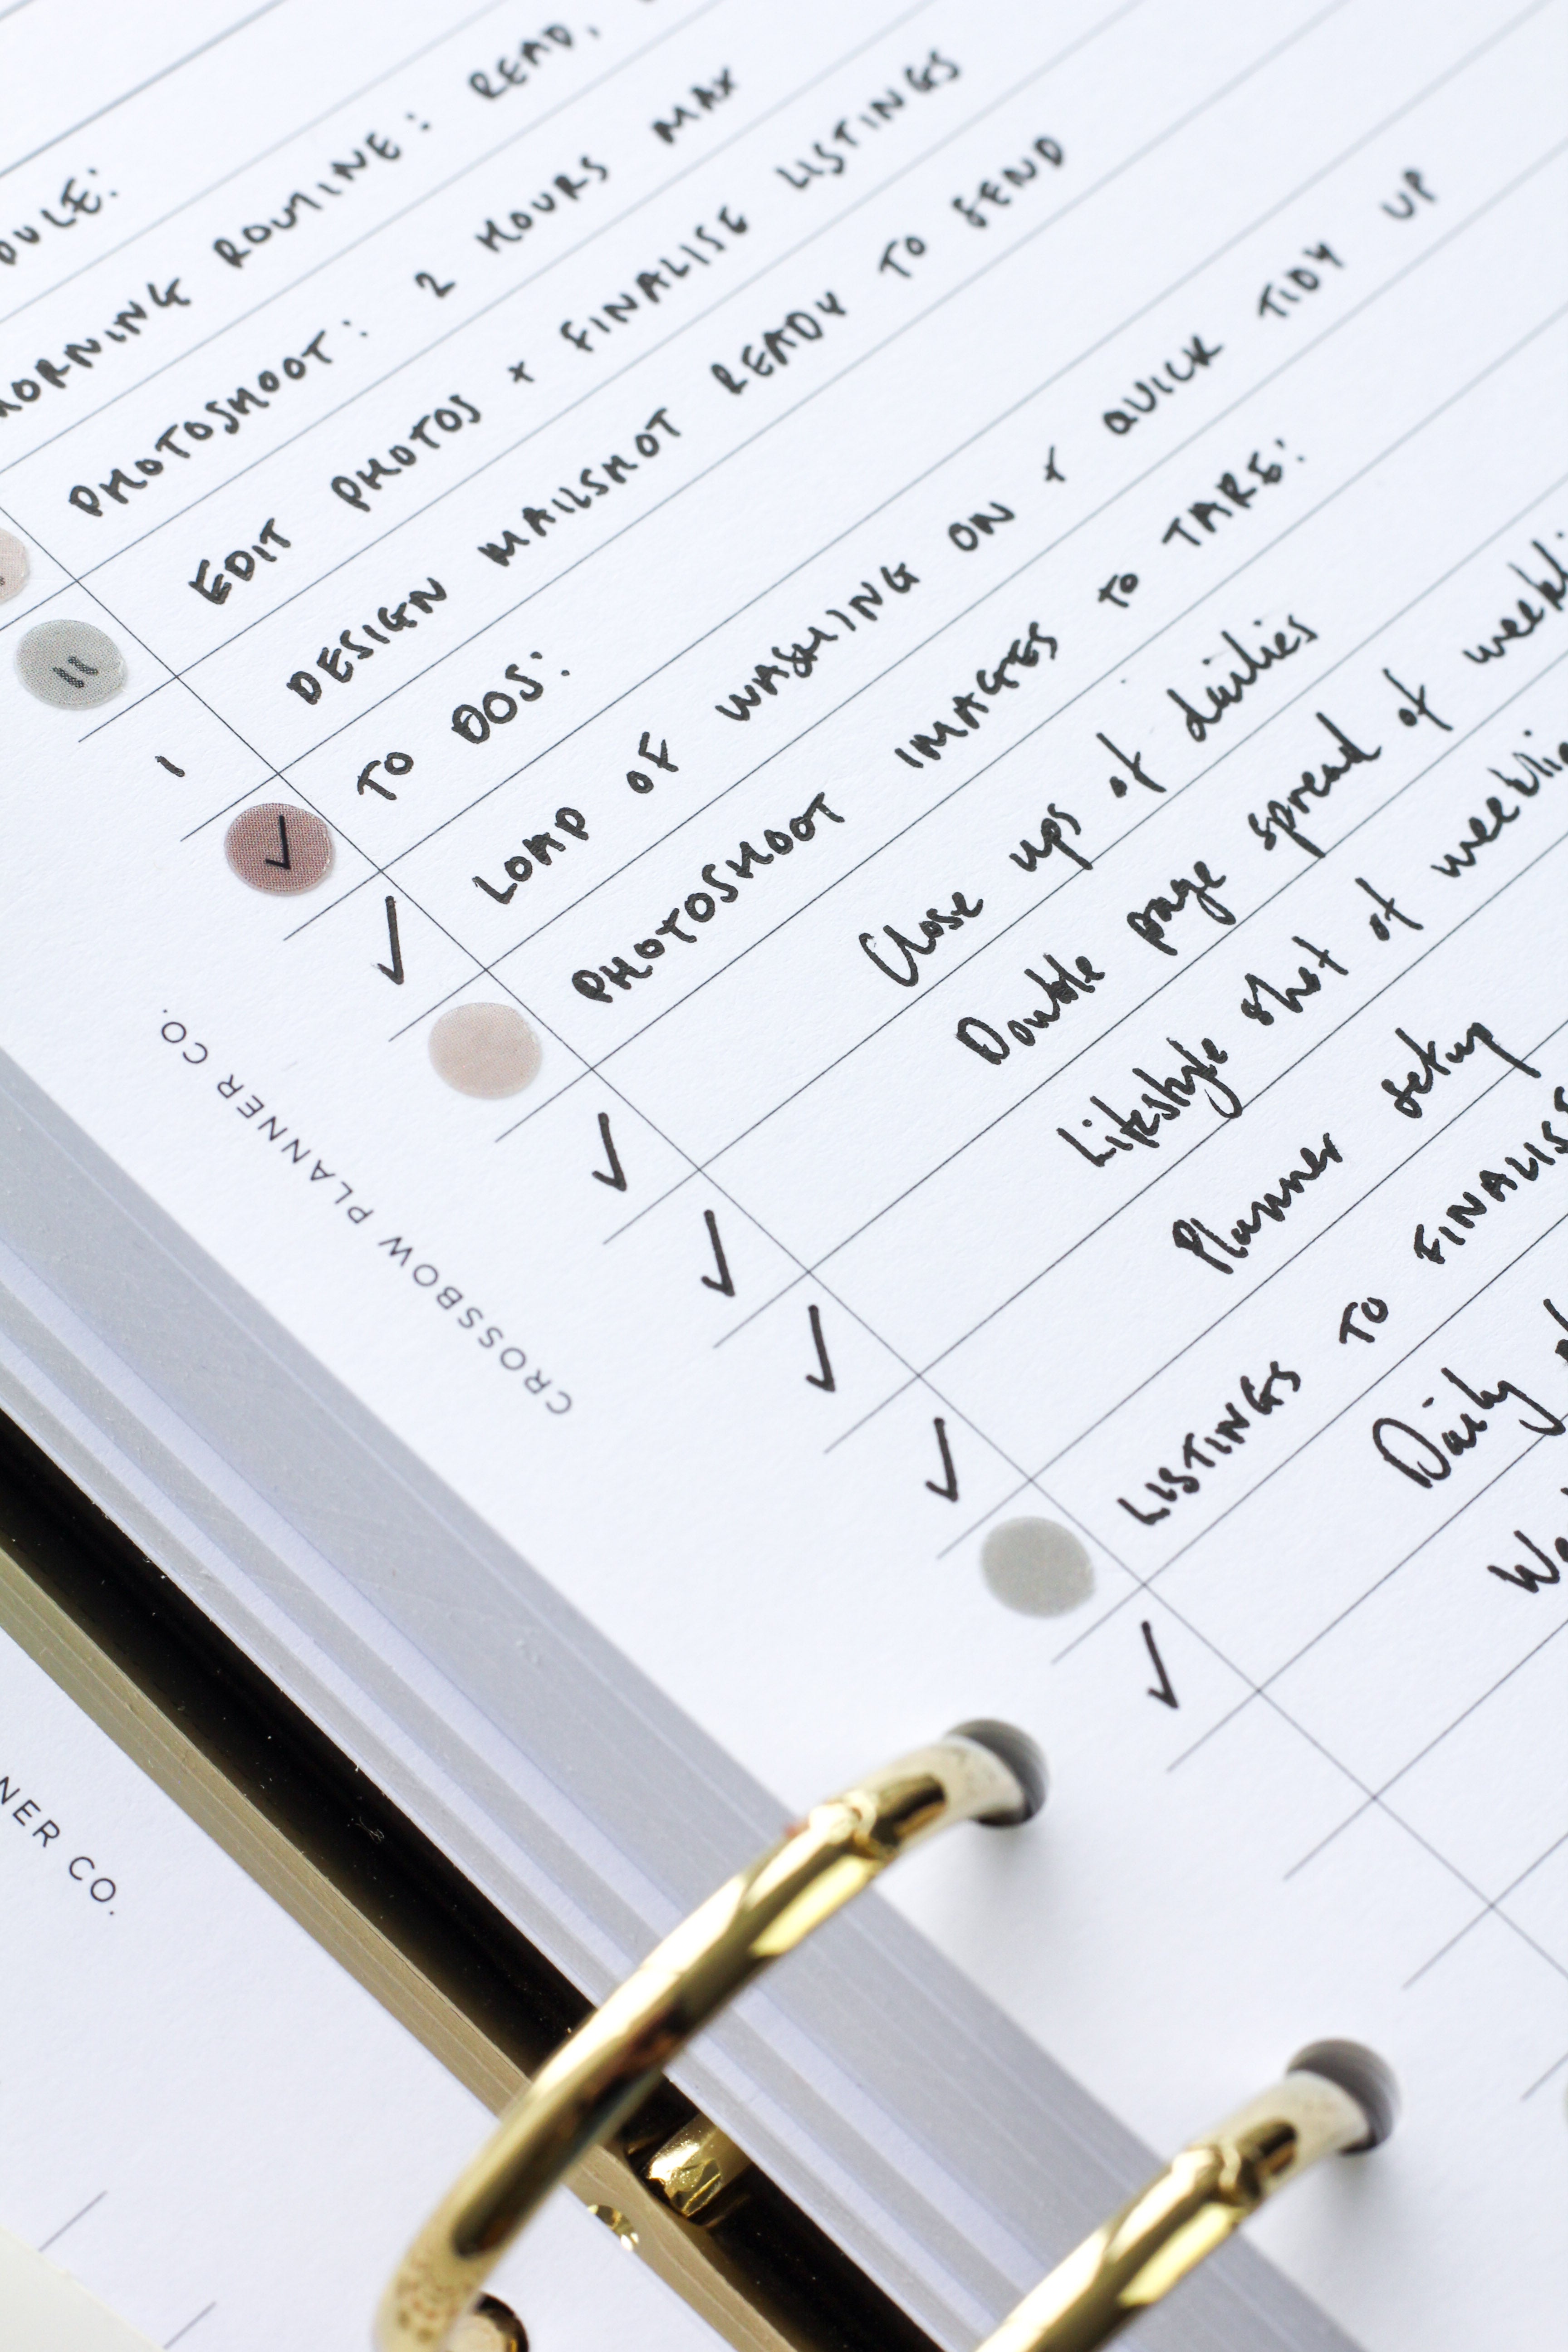 MORNING ROUTINE: READ,
PHOTOSHOOT: 2 HOURS MAX
EDIT PHOTOS + FINALISE LISTINGS
DESIGN MAILSHOT READY TO SEND
TO DOS:
LOAD OF WASHING ON + QUICK TIDY UP
PHOTOSHOOT IMAGES TO TAKE:
Close ups of dailies
Double page spread of
Lifestyle shot of
Planner setup
LISTINGS TO FINALISE
Daily
CROSSBOW PLANNER CO.
CO.